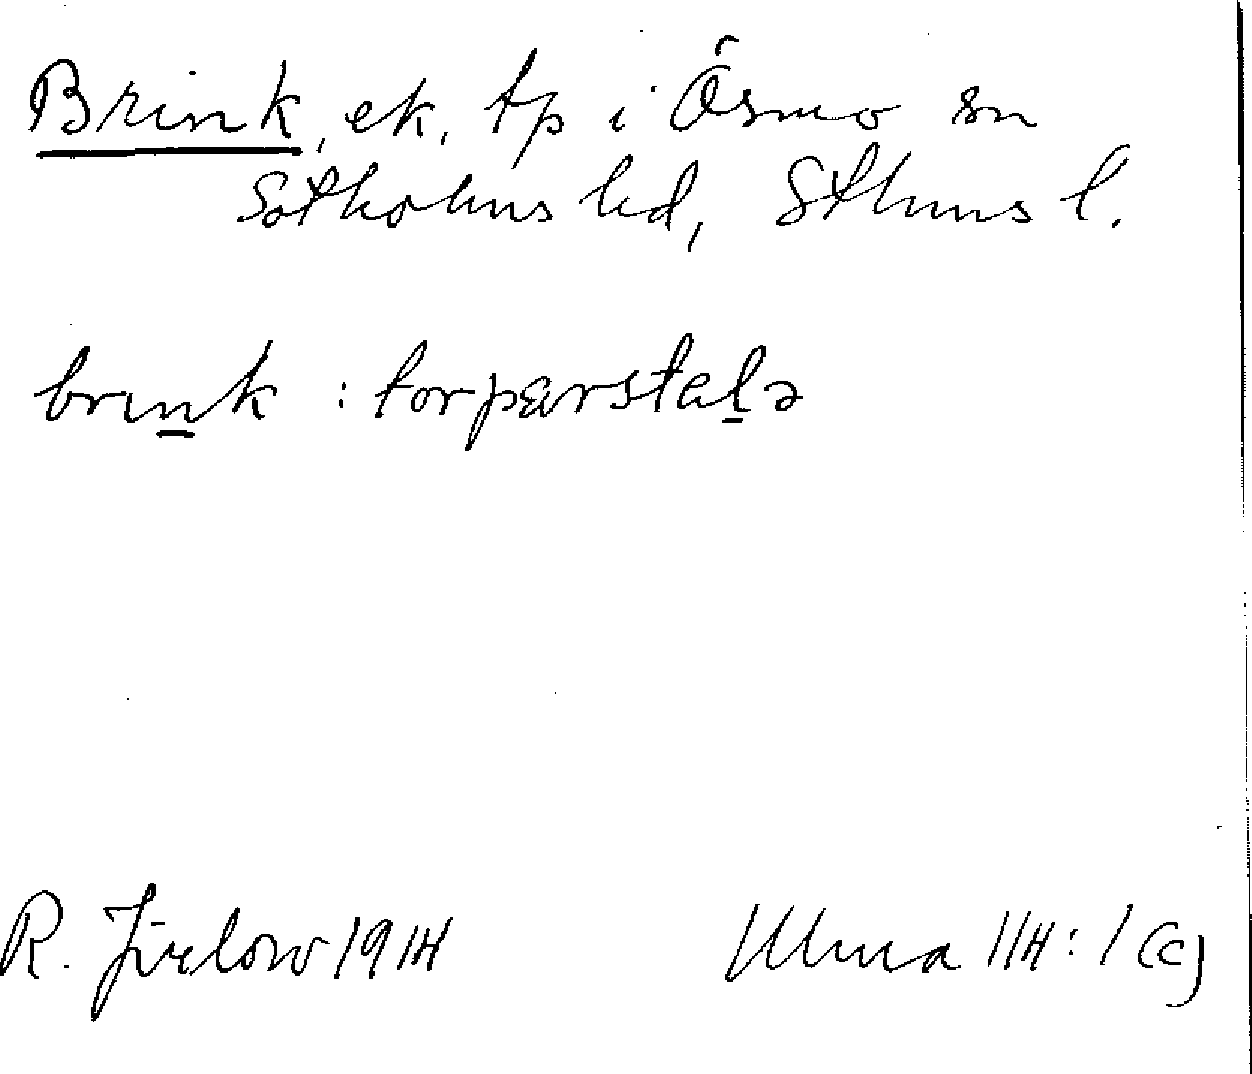 Brink, ek, tp i Ösmo sn
Sotholms hd, Sthms l.
brink : torparställə
R. Jirlow 1914
Ulma 114:1 (c)